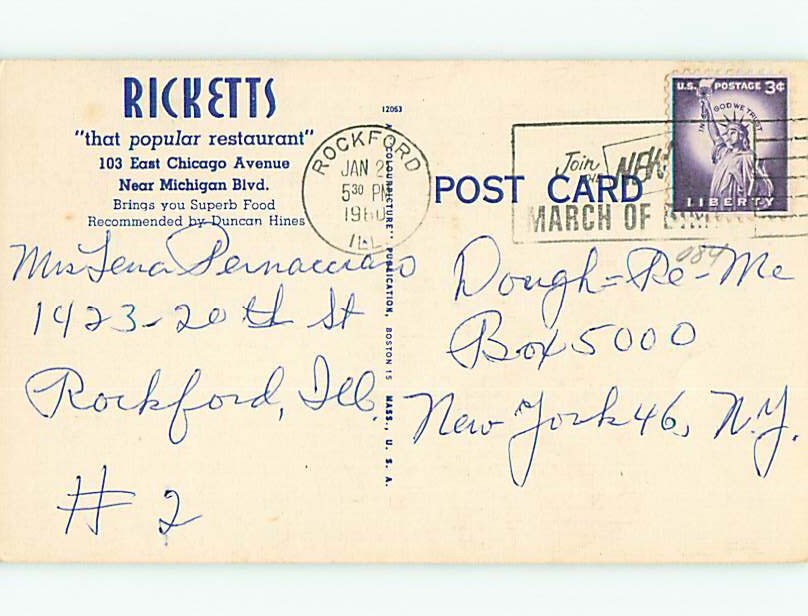 RICKETTS
"that popular restaurant"
103 East Chicago Avenue
Near Michigan Blvd.
Brings you Superb Food
Recommended by Duncan Hines
12053
"COLOURPICTURE" PUBLICATION, BOSTON 15 MASS., U. S. A.
ROCKFORD
JAN 25
5 30 PM
1960
ILL
POST CARD
Join
MARCH OF
U.S. POSTAGE 3¢
IN GOD WE TRUST
LIBERTY
084
Mrs Lena
1423-20th St
Rockford, Ill.
# 2
Dough=Re-Me
Box 5000
New York 46, N.Y.